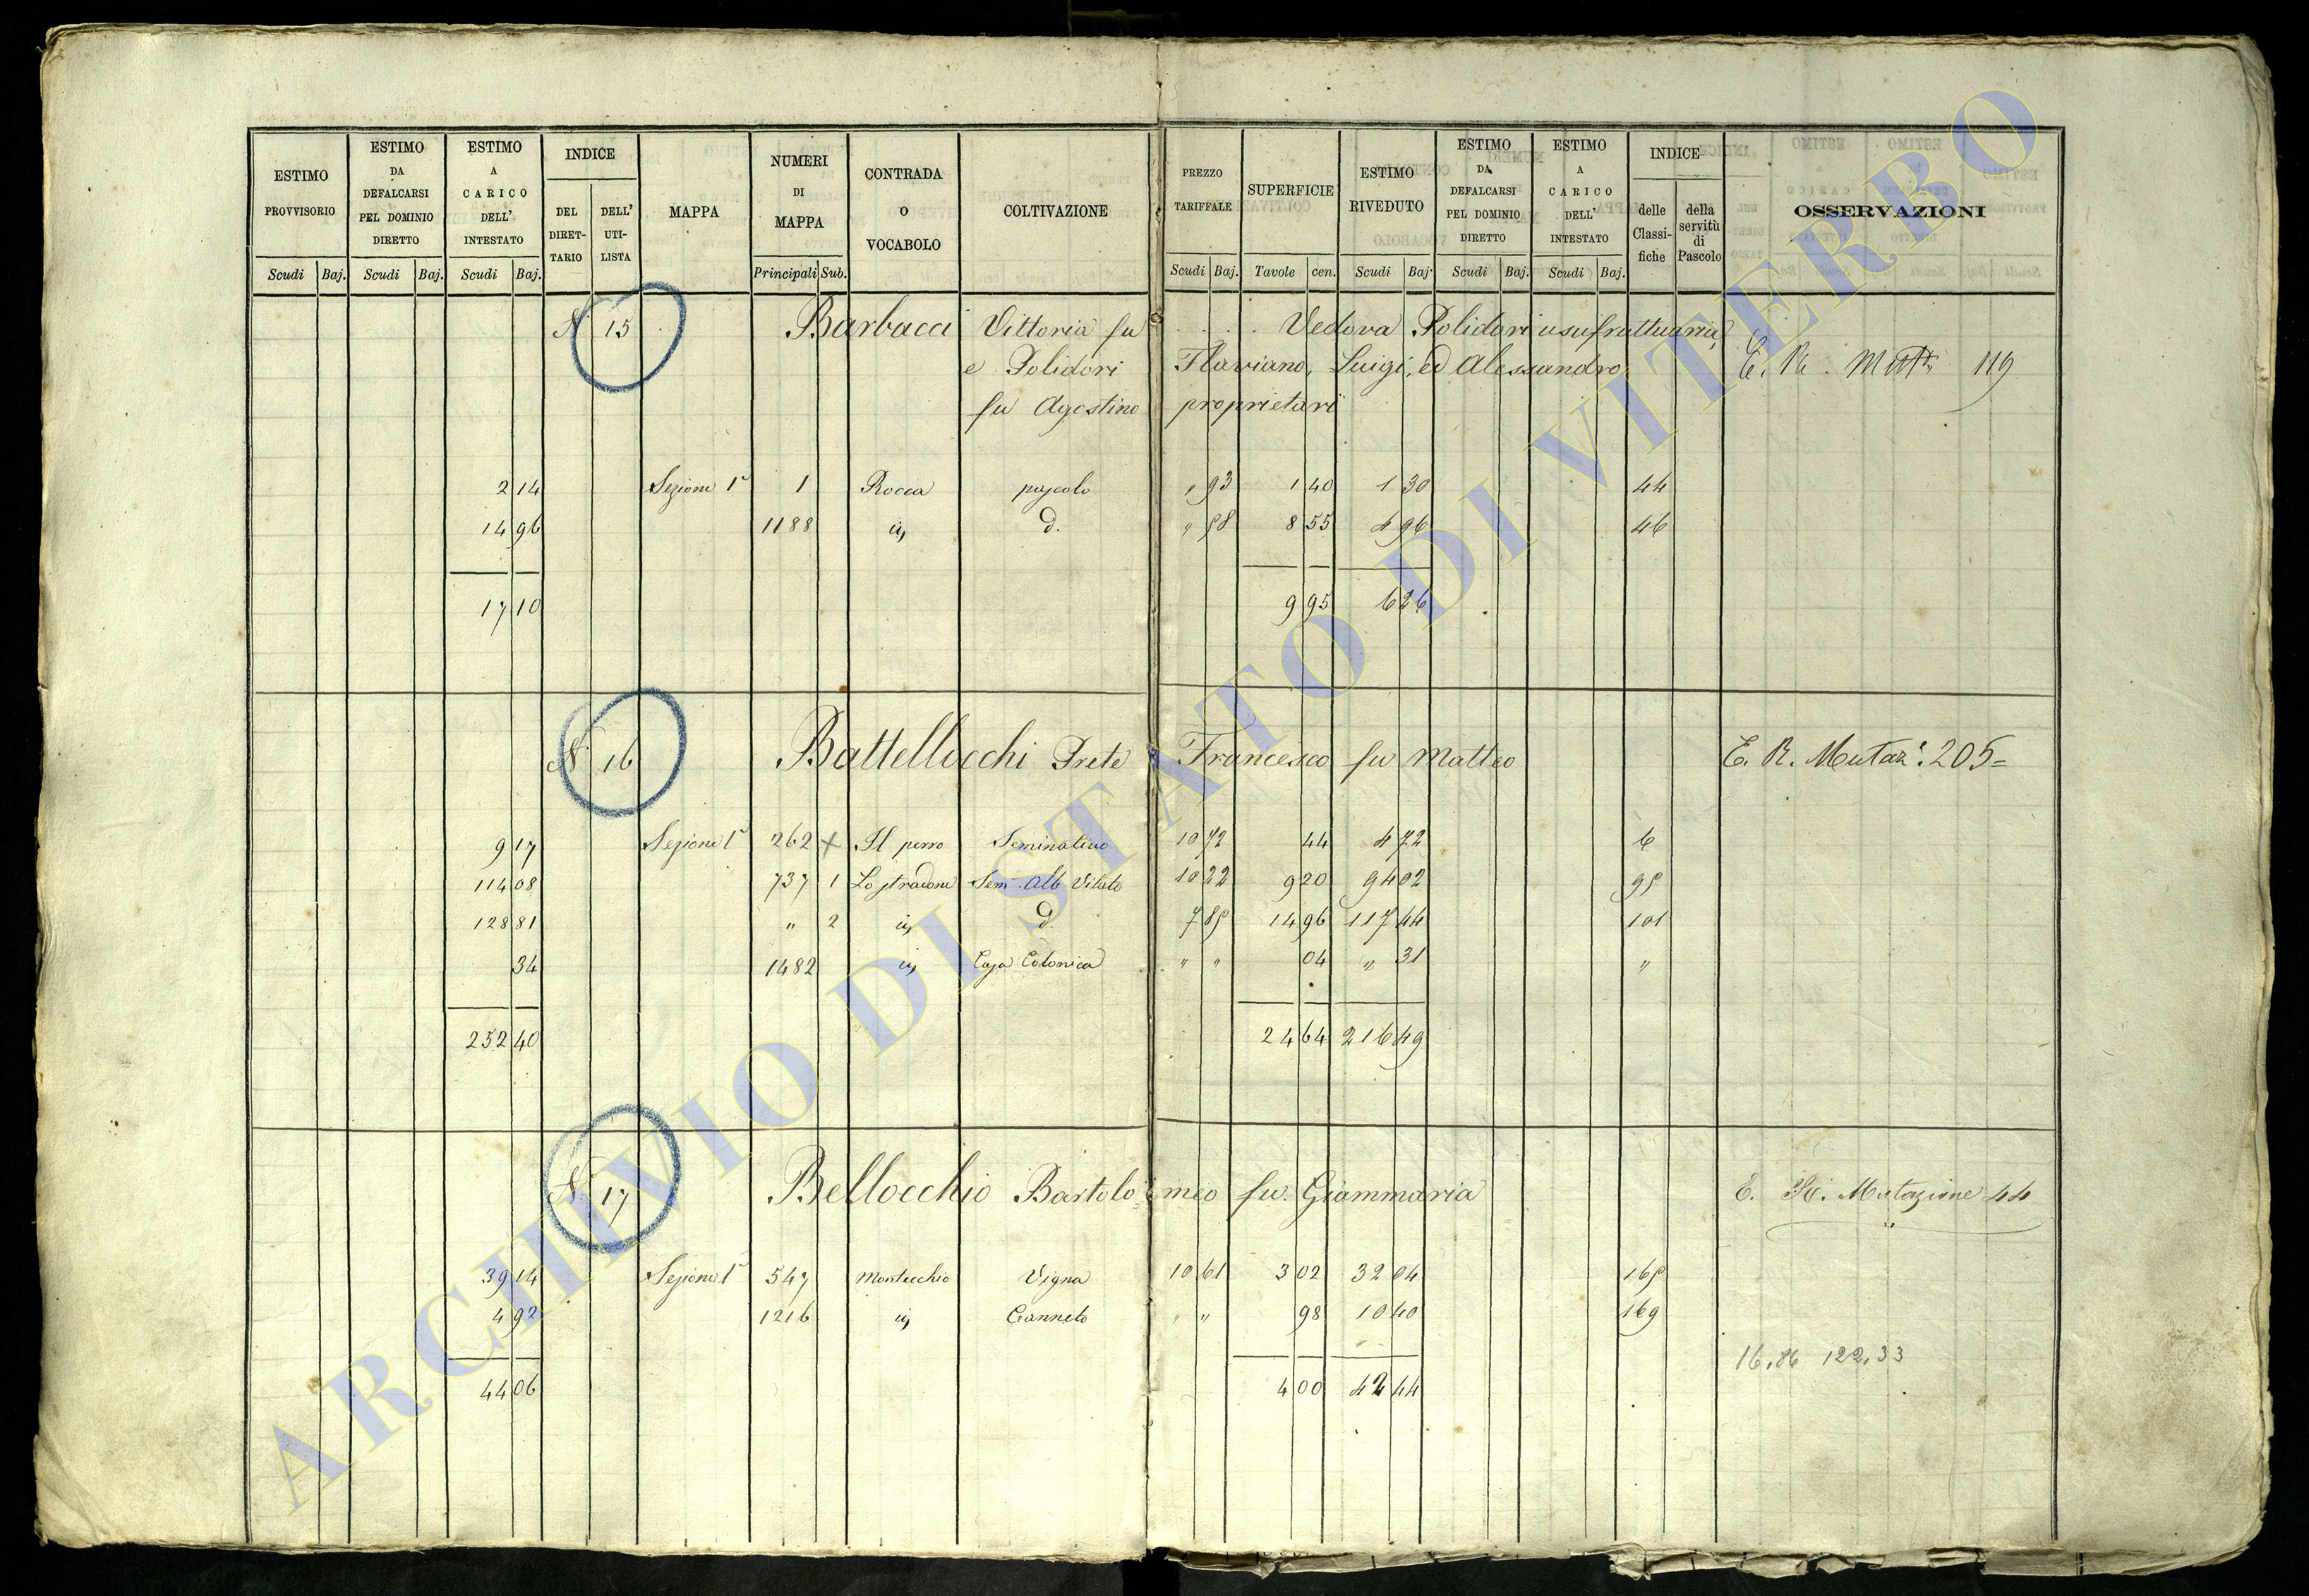 ESTIMO PROVVISORIO | ESTIMO DA DEFALCARSI PEL DOMINIO DIRETTO | ESTIMO A CARICO DELL' INTESTATO | INDICE | MAPPA | NUMERI DI MAPPA | CONTRADA O VOCABOLO | COLTIVAZIONE | PREZZO TARIFFALE | SUPERFICIE | ESTIMO RIVEDUTO | ESTIMO DA DEFALCARSI PEL DOMINIO DIRETTO | ESTIMO A CARICO DELL' INTESTATO | INDICE | OSSERVAZIONI
DEL DIRET-TARIO | DELL' UTI-LISTA | delle Classi-fiche | della servitù di Pascolo
Scudi | Baj. | Scudi | Baj. | Scudi | Baj. | Principali | Sub. | Scudi | Baj. | Tavole | cen. | Scudi | Baj. | Scudi | Baj. | Scudi | Baj.
N 15 Barbacci Vittoria fu . . . . Vedova Polidori usufruttuaria,
e Polidori Flaviano, Luigi, ed Alessandro E. R. 119
fu Agostino proprietari
2 14 Sezione 1ª 1 Rocca pascolo " 93 1 40 1 30 44
14 96 1188 ivi d. " 58 8 55 4 96 46
17 10 9 95 6 26
N. 16 Battellocchi Prete Francesco fu Matteo E. R. Mutaz. 205=
9 17 Sezione 1ª 262 x Il perro Seminativo 10 72 44 4 72 6
114 08 737 1 Lo stradone Sem. Alb. Vitato 10 22 9 20 94 02 95
128 81 " 2 ivi d. 7 85 14 96 117 44 101
34 1482 ivi Casa Colonica " " 04 " 31 "
252 40 24 64 216 49
N. 17 Bellocchio Bartolomeo fu Giammaria E. Mutazione 44
39 14 Sezione 1ª 547 Montecchio Vigna 10 61 3 02 32 04 165
4 92 1216 ivi Canneto " " 98 10 40 169
16,86 122,33
44 06 4 00 42 44
ARCHIVIO DI STATO DI VITERBO